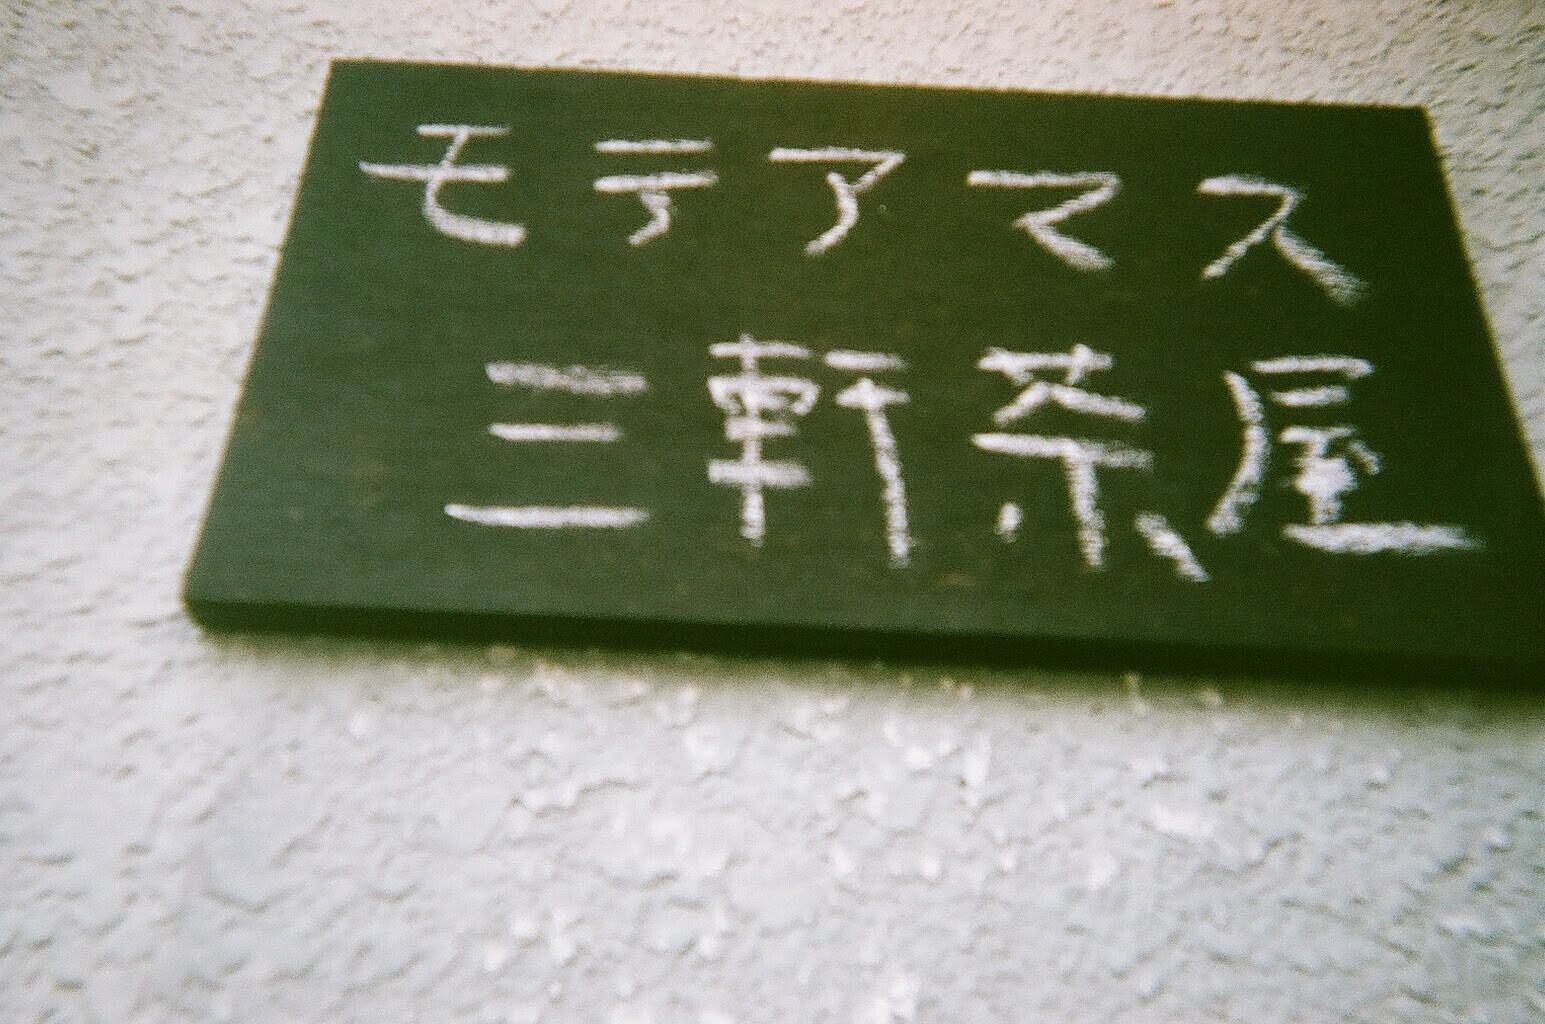 モテアマス
三軒茶屋